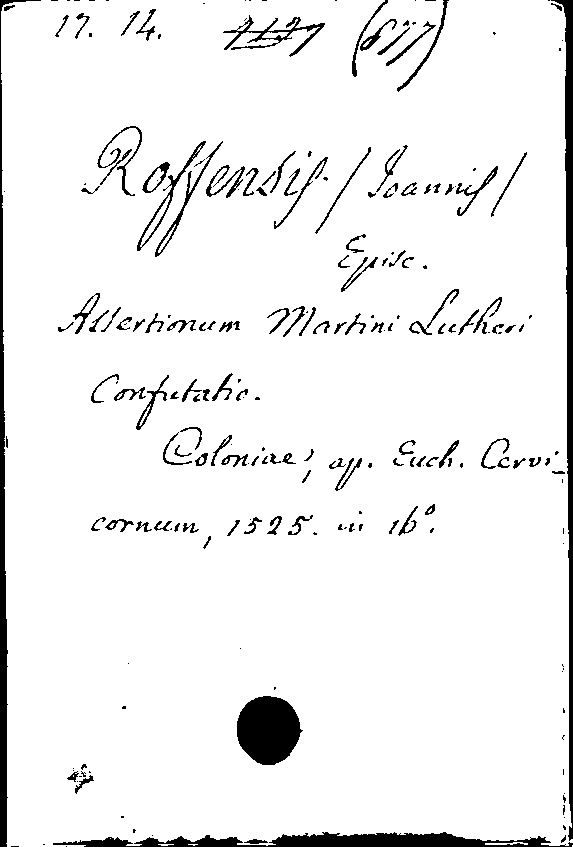 17. 14. (677)
Roffensis / Joannis /
Episc.
Assertionum Martini Lutheri
Confutatio.
Coloniae, ap. Euch. Cervi-
cornum, 1525. in 16º.